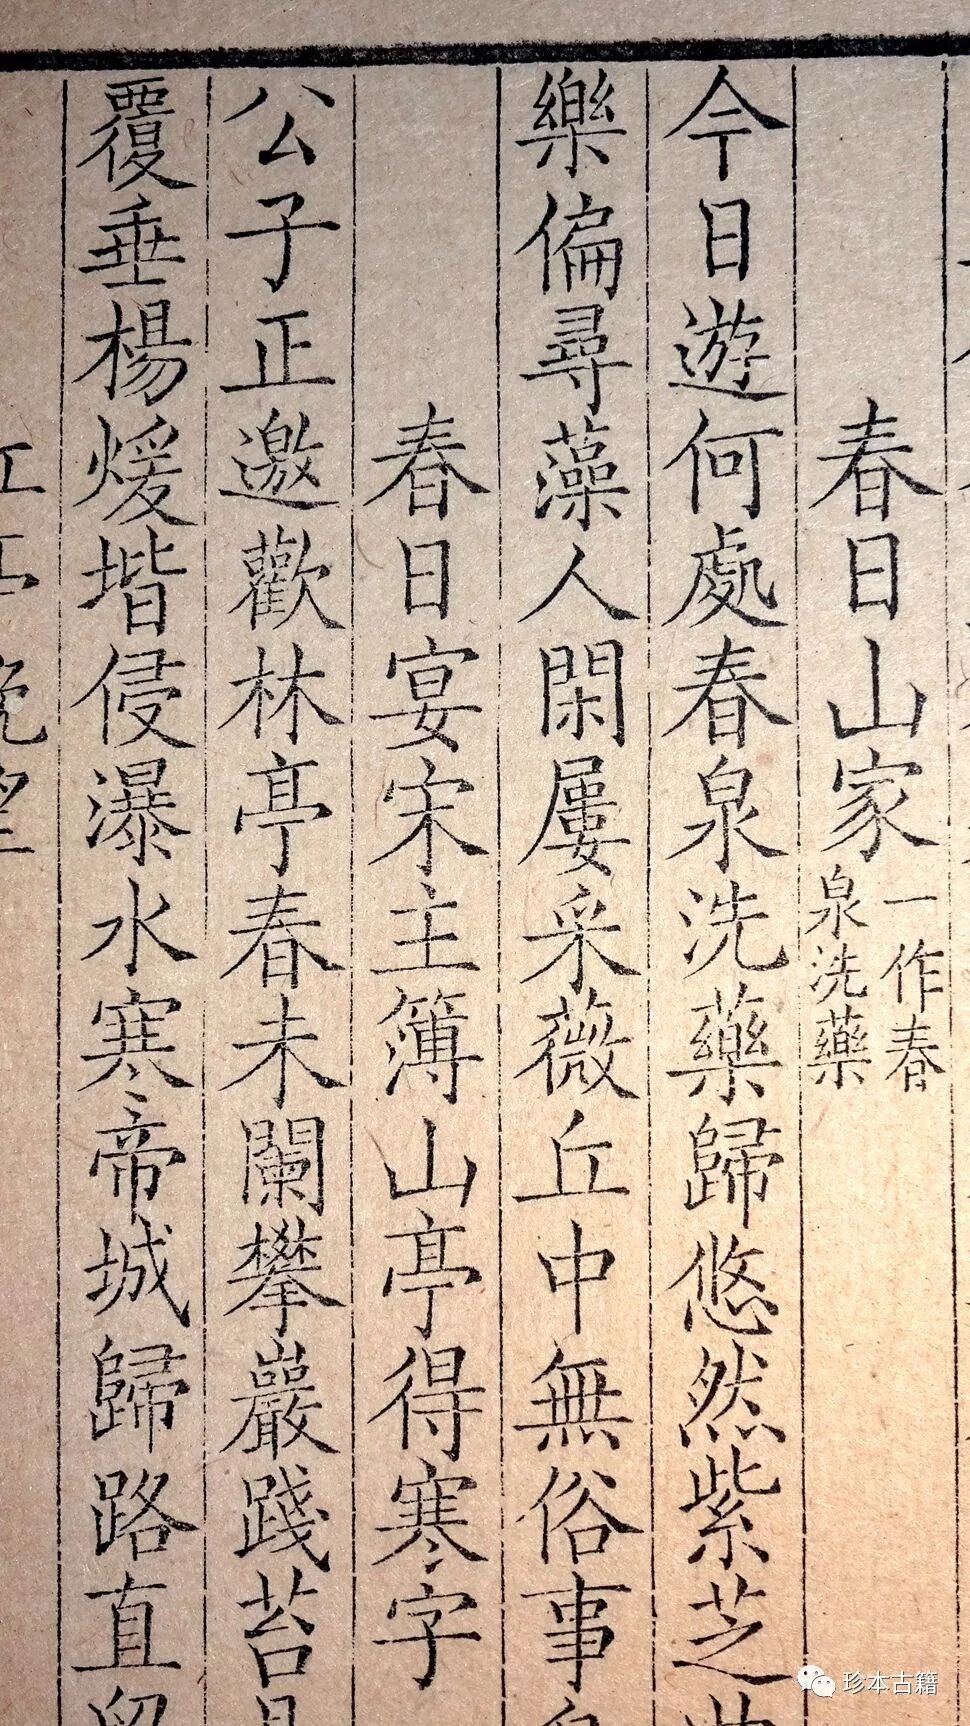 春日山家一作春泉洗藥
今日遊何處春泉洗藥歸悠然紫芝
樂偏尋藻人閑屢采薇丘中無俗事
春日宴宋主簿山亭得寒字
公子正邀歡林亭春未闌攀巖踐苔
覆垂楊煖堦侵瀑水寒帝城歸路直
江亭晚望
珍本古籍